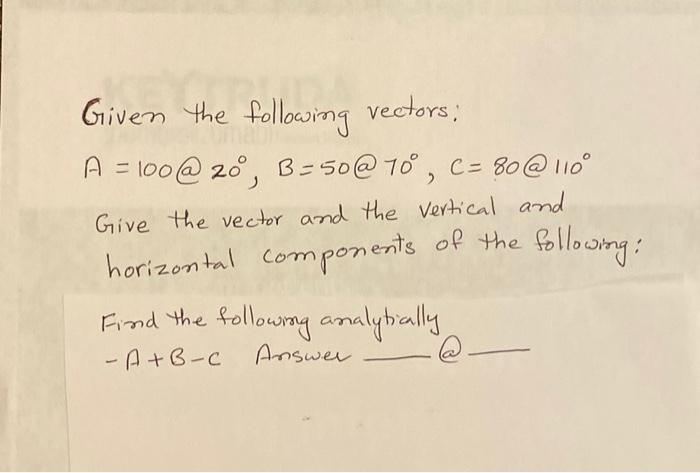 Given the following vectors:
A = 100@ 20°, B = 50@ 70°, C = 80@110°
Give the vector and the vertical and
horizontal components of the following:
Find the following analytically
- A + B - C Answer ___ @ ___